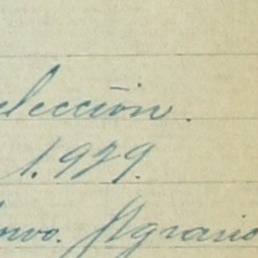 elección.
1.929.
Agrario